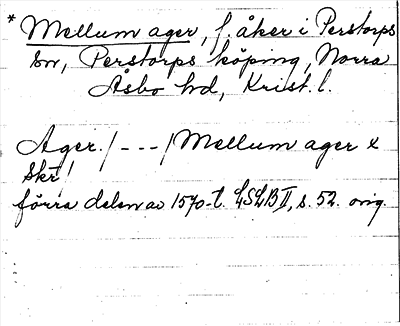 * Mellum ager, f. åker i Perstorps
sn, Perstorps köping, Norra
Åsbo hd, Krist. l.
Ager. / --- / Mellum ager x
Skr!
förra delen av 1570-t. LSLB II, s. 52. orig.